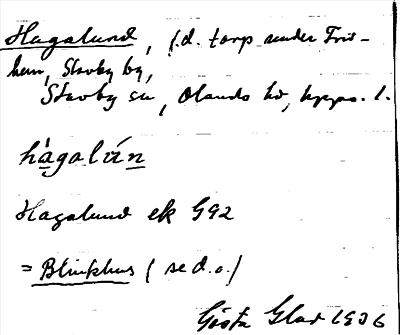 Hagalund, f.d. torp under Frös-
hem, Skovby by,
Skovby sn, Olands hd, Upps. l.
hàgalún
Hagalund ek G92
= Blinkhus (se d.o.)
Gösta Glad 1936